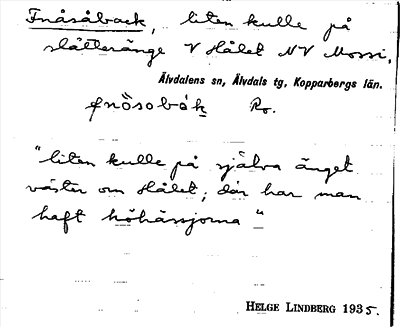 Fnåsåback, liten kulle på
slätteränge V Hålet NV Mossi,
Älvdalens sn, Älvdals tg, Kopparbergs län.
fnö̀sobák Ro.
"liten kulle på själva änget
väster om Hålet; där har man
haft höhässjorna"
HELGE LINDBERG 1935.